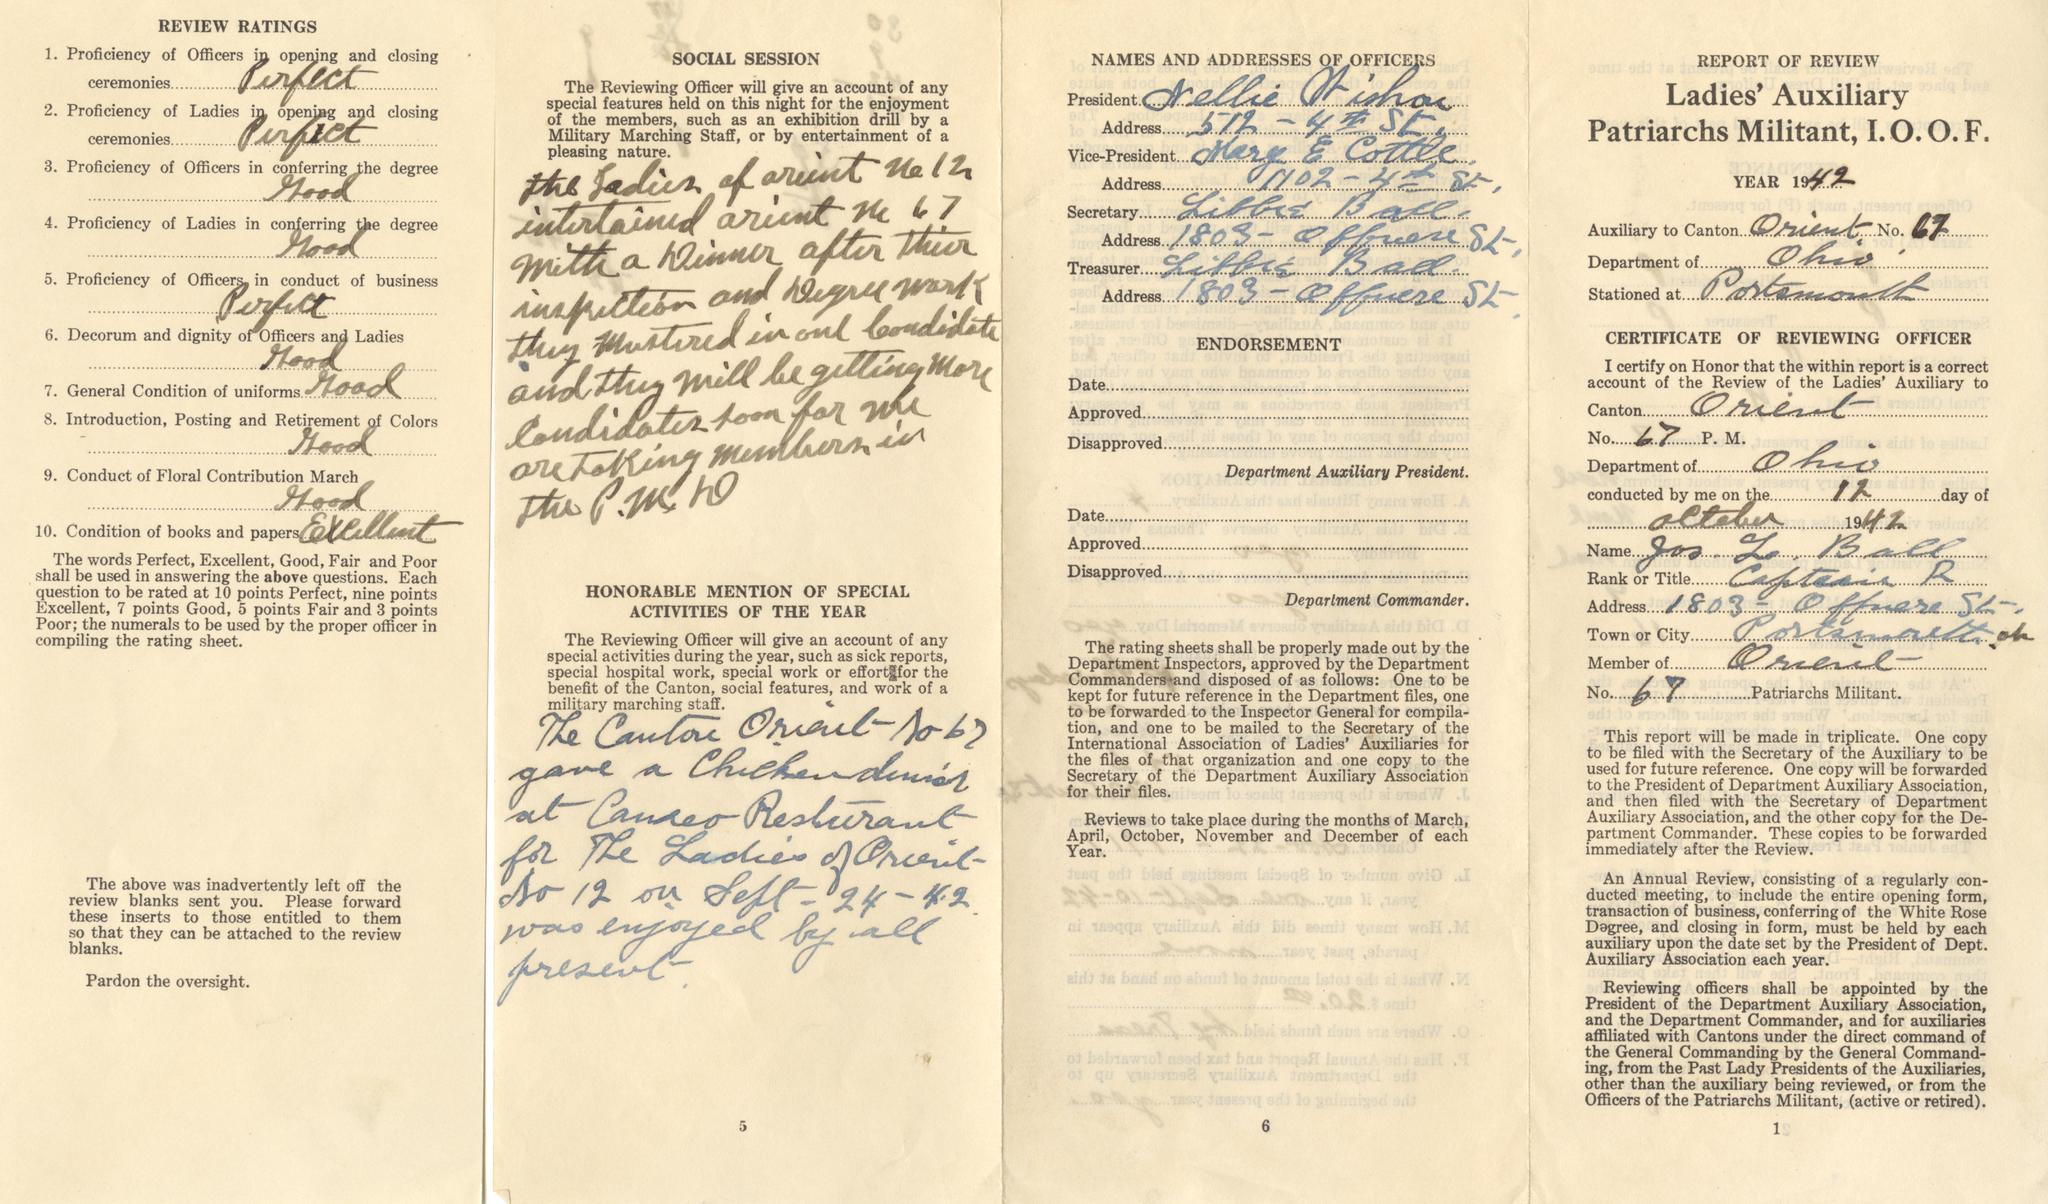 REVIEW RATINGS
1. Proficiency of Officers in opening and closing
ceremonies Perfect
2. Proficiency of Ladies in opening and closing
ceremonies Perfect
3. Proficiency of Officers in conferring the degree
Good
4. Proficiency of Ladies in conferring the degree
Good
5. Proficiency of Officers in conduct of business
Perfect
6. Decorum and dignity of Officers and Ladies
Good
7. General Condition of uniforms Good
8. Introduction, Posting and Retirement of Colors
Good
9. Conduct of Floral Contribution March
Good
10. Condition of books and papers Excellent
The words Perfect, Excellent, Good, Fair and Poor
shall be used in answering the above questions. Each
question to be rated at 10 points Perfect, nine points
Excellent, 7 points Good, 5 points Fair and 3 points
Poor; the numerals to be used by the proper officer in
compiling the rating sheet.
The above was inadvertently left off the
review blanks sent you. Please forward
these inserts to those entitled to them
so that they can be attached to the review
blanks.
Pardon the oversight.
SOCIAL SESSION
The Reviewing Officer will give an account of any
special features held on this night for the enjoyment
of the members, such as an exhibition drill by a
Military Marching Staff, or by entertainment of a
pleasing nature.
the Ladies of orient No 12
intertained orient No 67
With a Dinner after thier
inspection and Degree work
they Mustered in one Candidate
and they Will be getting More
Candidates soon for We
are taking Members in
the P. M. D
HONORABLE MENTION OF SPECIAL
ACTIVITIES OF THE YEAR
The Reviewing Officer will give an account of any
special activities during the year, such as sick reports,
special hospital work, special work or effort for the
benefit of the Canton, social features, and work of a
military marching staff.
The Canton Orient No 67
gave a Chicken dinner
at Resturant
for The Ladies of Orient
No 12 on Sept - 24 - 42
was enjoyed by all
present.
5
NAMES AND ADDRESSES OF OFFICERS
President Nellie Wishon
Address 512 - 4th St.
Vice-President Mary E Cottle.
Address 1102 - 4th St.
Secretary Libbie Ball.
Address 1803 - Offnere St.
Treasurer Libbie Ball.
Address 1803 - Offnere St
ENDORSEMENT
Date
Approved
Disapproved
Department Auxiliary President.
Date
Approved
Disapproved
Department Commander.
The rating sheets shall be properly made out by the
Department Inspectors, approved by the Department
Commanders and disposed of as follows: One to be
kept for future reference in the Department files, one
to be forwarded to the Inspector General for compila-
tion, and one to be mailed to the Secretary of the
International Association of Ladies' Auxiliaries for
the files of that organization and one copy to the
Secretary of the Department Auxiliary Association
for their files.
Reviews to take place during the months of March,
April, October, November and December of each
Year.
6
REPORT OF REVIEW
Ladies' Auxiliary
Patriarchs Militant, I. O. O. F.
YEAR 1942
Auxiliary to Canton Orient No. 67
Department of Ohio
Stationed at Portsmouth
CERTIFICATE OF REVIEWING OFFICER
I certify on Honor that the within report is a correct
account of the Review of the Ladies' Auxiliary to
Canton Orient
No. 67 P. M.
Department of Ohio
conducted by me on the 12 day of
october 1942
Name Jos. L. Ball
Rank or Title Captain R
Address 1803 - Offnere St.
Town or City Portsmouth oh
Member of Orient
No. 67 Patriarchs Militant.
This report will be made in triplicate. One copy
to be filed with the Secretary of the Auxiliary to be
used for future reference. One copy will be forwarded
to the President of Department Auxiliary Association,
and then filed with the Secretary of Department
Auxiliary Association, and the other copy for the De-
partment Commander. These copies to be forwarded
immediately after the Review.
An Annual Review, consisting of a regularly con-
ducted meeting, to include the entire opening form,
transaction of business, conferring of the White Rose
Degree, and closing in form, must be held by each
auxiliary upon the date set by the President of Dept.
Auxiliary Association each year.
Reviewing officers shall be appointed by the
President of the Department Auxiliary Association,
and the Department Commander, and for auxiliaries
affiliated with Cantons under the direct command of
the General Commanding by the General Command-
ing, from the Past Lady Presidents of the Auxiliaries,
other than the auxiliary being reviewed, or from the
Officers of the Patriarchs Militant, (active or retired).
1